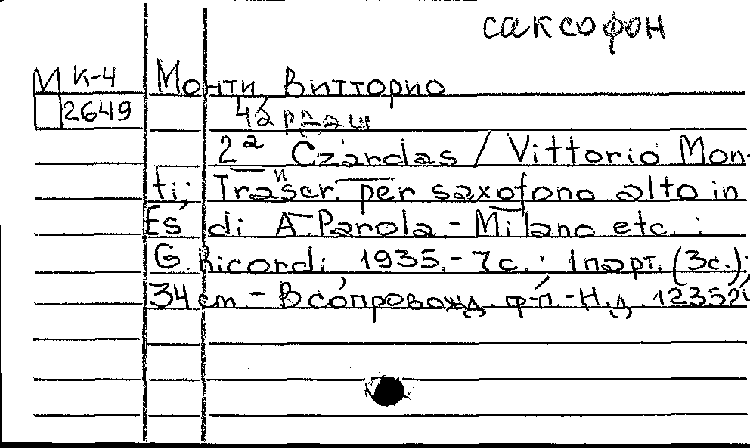 саксофон
М К-4 Монти, Витторио
2649 Чардаш
2ª Czardas / Vittorio Mon-
ti; Transcr. per saxofono alto in
Es di A. Parola. - Milano etc. :
G. Ricordi, 1935. - 7 с. ; 1 парт. (3 с.);
34 cm - В сопровожд. ф-п. - Н.д.